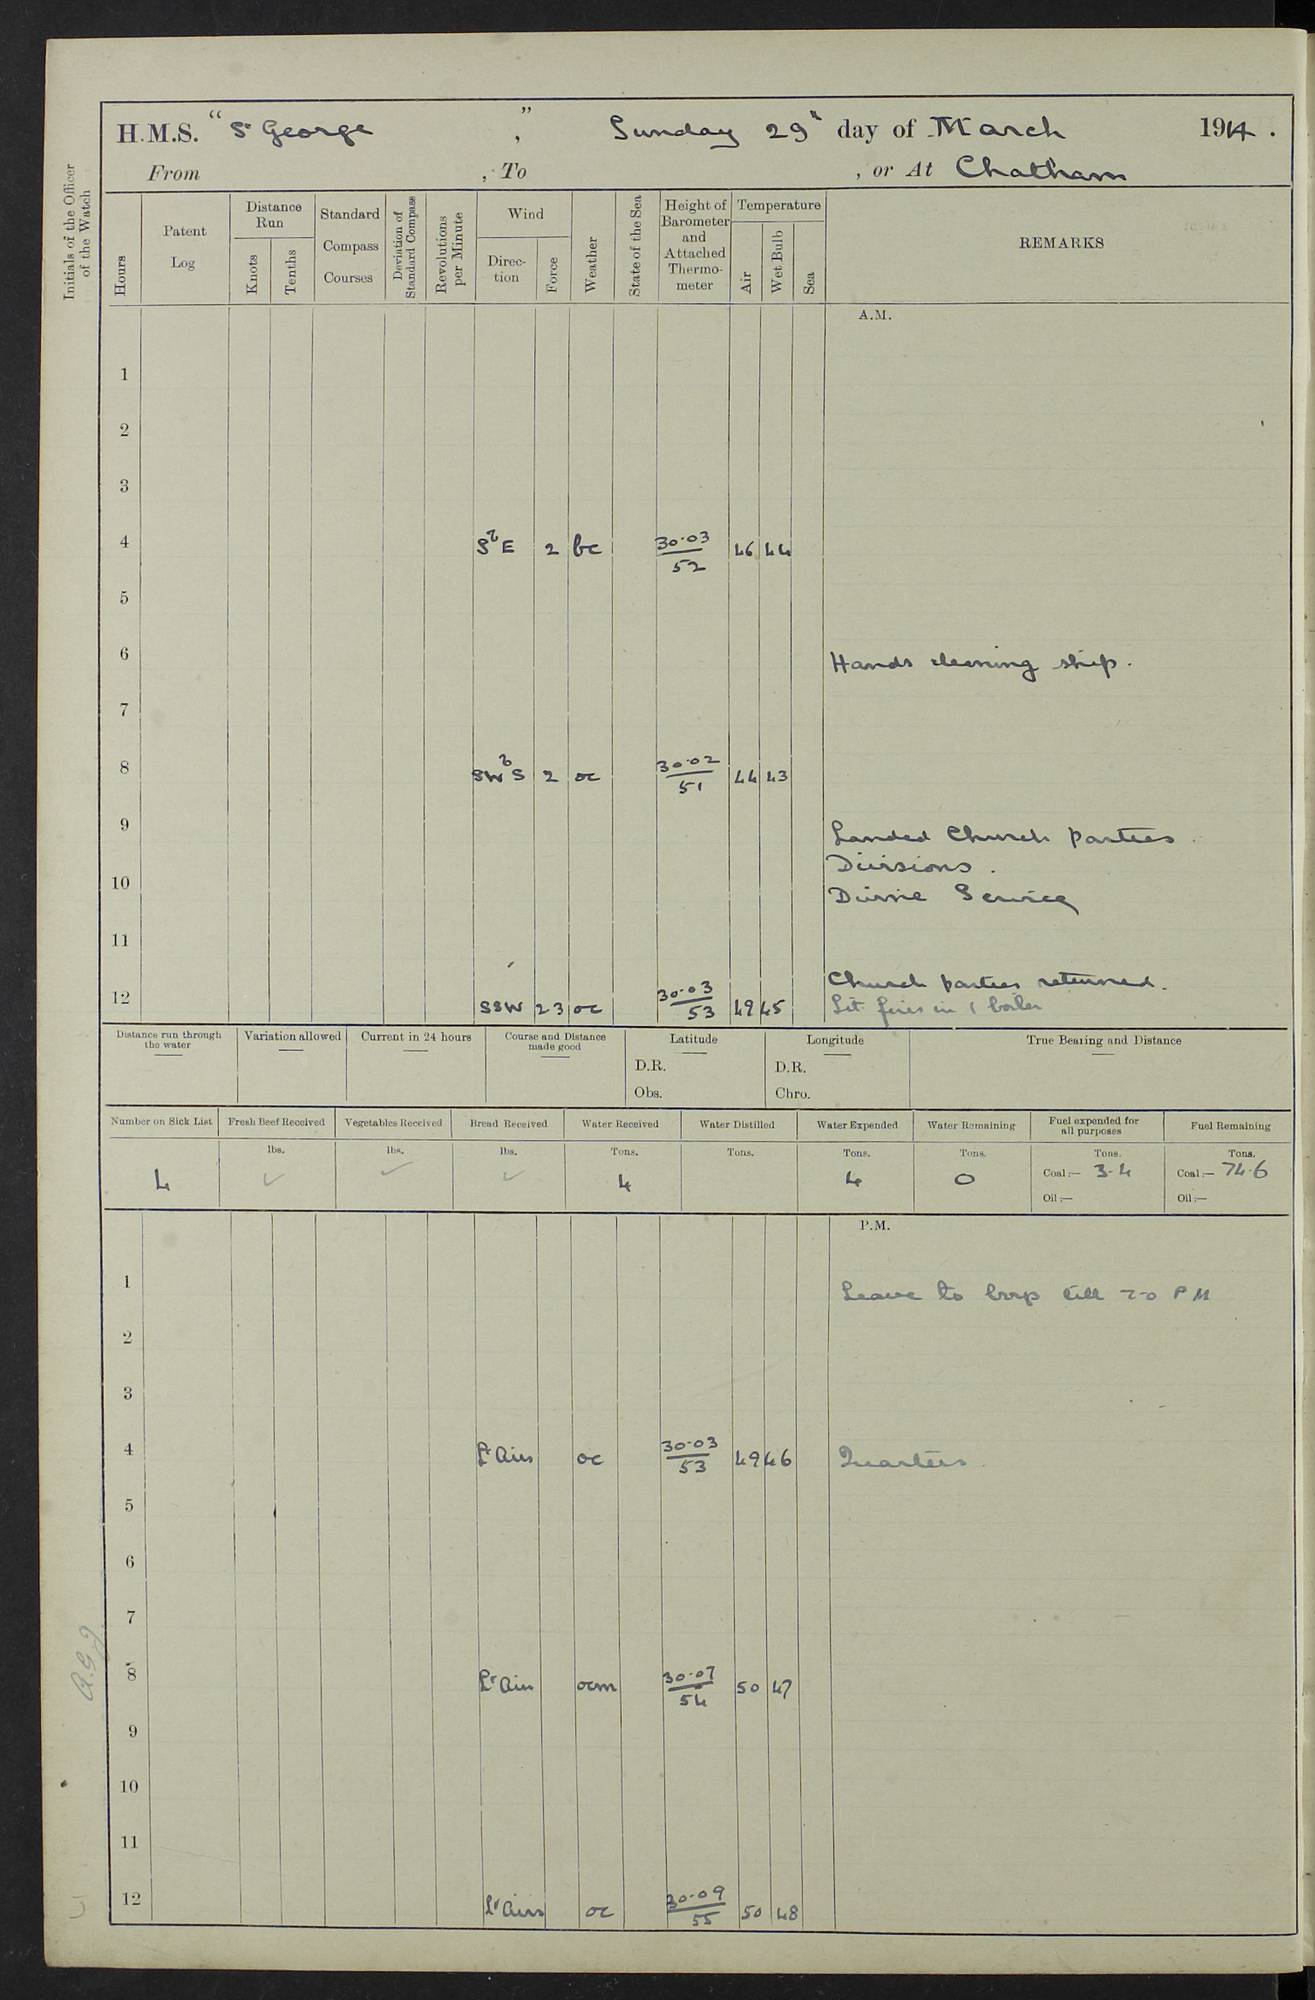 H.M.S. " St George ", Sunday 29th day of March 1914.
From , To , or At Chatham
Initials of the Officer of the Watch
Hours
Patent Log
Distance Run
Knots
Tenths
Standard Compass Courses
Deviation of Standard Compass
Revolutions per Minute
Wind
Direction
Force
Weather
State of the Sea
Height of Barometer and Attached Thermometer
Temperature
Air
Wet Bulb
Sea
REMARKS
A.M.
1
2
3
4 SbE 2 bc 30.03/52 46 44
5
6 Hands cleaning ship.
7
8 SWbS 2 oc 30.02/51 44 43
9 Landed Church parties.
Divisions.
10 Divine Service
11
Church parties returned.
12 SSW 2 3 oc 30.03/53 49 45 Lit fires in 1 boiler
Distance run through the water
Variation allowed
Current in 24 hours
Course and Distance made good
Latitude
D.R.
Obs.
Longitude
D.R.
Chro.
True Bearing and Distance
Number on Sick List
Fresh Beef Received
Vegetables Received
Bread Received
Water Received
Water Distilled
Water Expended
Water Remaining
Fuel expended for all purposes
Fuel Remaining
lbs. lbs. lbs. Tons. Tons. Tons. Tons. Tons. Tons.
4 ✓ ✓ ✓ 4 4 0 Coal:— 3.4 Coal:— 74.6
Oil:— Oil:—
P.M.
1 Leave to till 7-0 PM
2
3
4 Lt Airs oc 30.03/53 49 46 Quarters.
5
6
7
8 Lt Airs ocm 30.07/54 50 47
9
10
11
12 Lt Airs oc 30.09/55 50 48